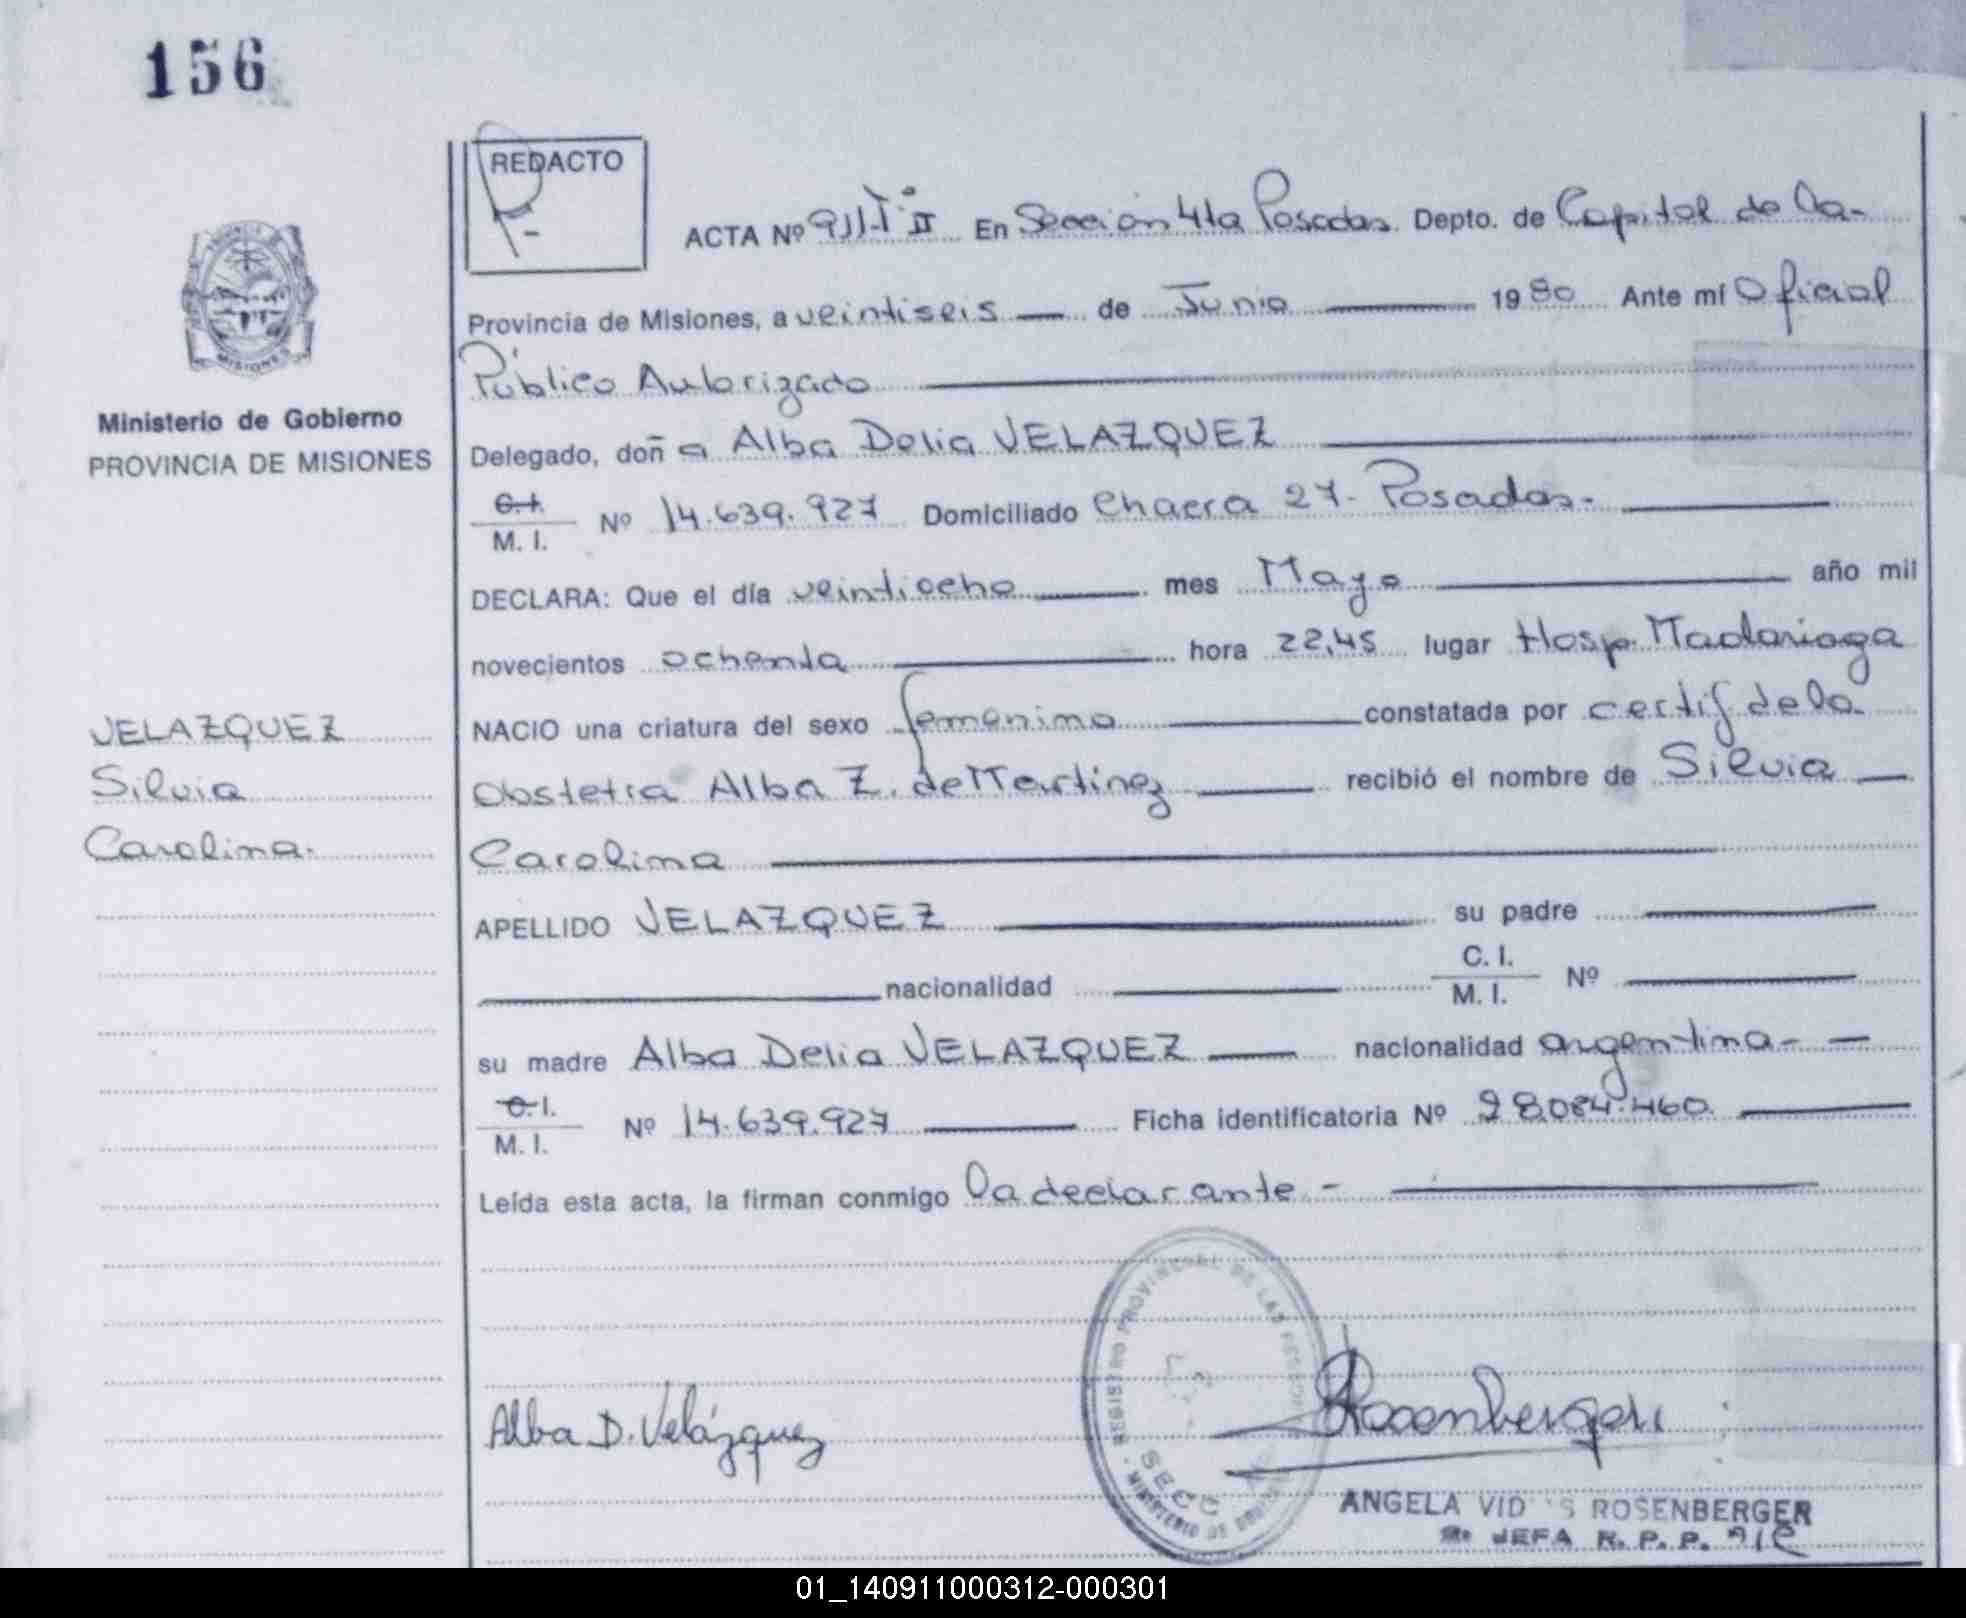 156
REDACTO
ACTA Nº 911-Tº II En Sección 4ta Posadas Depto. de Capital de la-
Provincia de Misiones, a veintiseis de Junio 1980 Ante mí Oficial
Público Autorizado
Ministerio de Gobierno
PROVINCIA DE MISIONES
MISIONES
Delegado, doñ a Alba Delia VELAZQUEZ
C.I.
M. I. Nº 14.639.927 Domiciliado Chacra 27- Posadas.-
DECLARA: Que el día veintiocho mes Mayo año mil
novecientos ochenta hora 22,45 lugar Hosp. Madariaga
VELAZQUEZ
Silvia
Carolina.
NACIO una criatura del sexo femenino constatada por certif de la
Obstetra Alba Z. de Martinez recibió el nombre de Silvia
Carolina
APELLIDO VELAZQUEZ su padre
nacionalidad C. I.
M. I. Nº
su madre Alba Delia VELAZQUEZ nacionalidad argentina-
C.I.
M. I. Nº 14.639.927 Ficha identificatoria Nº 28.084.460
Leída esta acta, la firman conmigo la declarante -
REGISTRO PROVINCIAL DE LAS PERSONAS
SECC
MINISTERIO DE
Alba D. Velázquez
Rosenberger
ANGELA VID S ROSENBERGER
JEFA R. P. P.
01_140911000312-000301